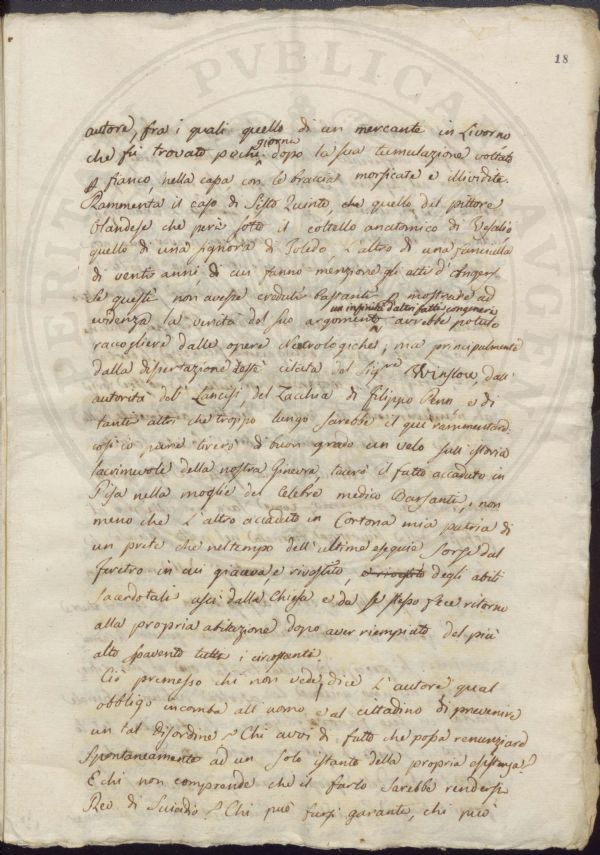 18
autore, fra i quali quello di un mercante in Livorno
che fù trovato pochi giorni dopo la sua tumulazione voltato
di fianco, nella cassa con le braccia morsicate e illividite.
Rammenta il caso di Sisto Quinto, che quello del pittore
Olandese che perì sotto il coltello anatomico di Vesalio
quello di una signora di Toledo, L'altro di una fanciulla
di venti anni, di cui fanno menzione gli atti d'Angers.
Se questi non avesse creduti bastanti a mostrare ad
evidenza la verità del suo argomento, un infinità d'altri fatti congeneri avrebbe potuto
raccogliere dalle opere Necrologiche, ma principalmente
dalla dissertazione citata del Sigre Winslow, dall'
autorità del Lancisi, del Zacchia di Filippo Penn, e di
tanti altri che troppo lungo sarebbe il quì rammentare.
così io pure tirerò di buon grado un velo sull'istoria
lacrimevole della nostra Ginevra, tacerò il fatto accaduto in
Pisa nella moglie del Celebre medico Barsanti, non
meno che L'altro accaduto in Cortona mia patria di
un prete che nel tempo dell'ultime esequie sorse dal
feretro in cui giaceva e rivestito, e rivestito degli abiti
sacerdotali uscì dalla Chiesa e da se stesso fece ritorno
alla propria abitazione dopo aver riempiato del più
alto spavento tutti i circostanti.
Ciò premesso chi non vede, dice L'autore qual
obbligo incomba all'uomo e al cittadino di prevenire
un tal disordine? Chi avvi di fatto che possa renunziare
spontaneamente ad un solo istante della propria esistenza?
E chi non comprende che il farlo sarebbe rendersi
Reo di Suicidio? Chi può farsi garante, chi può